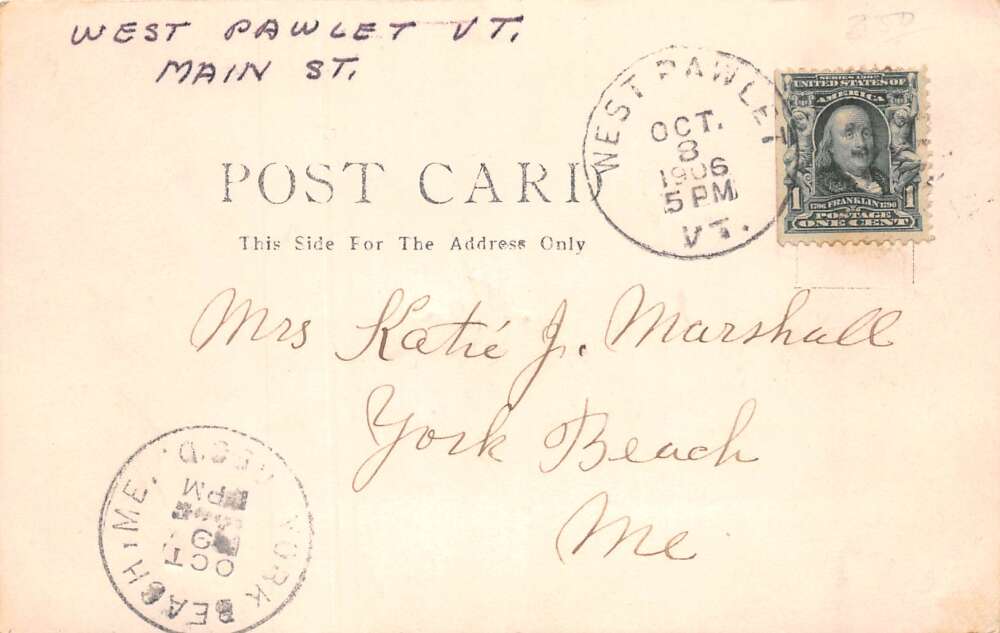 WEST PAWLET VT.
MAIN ST.
WEST PAWLET
OCT.
8
1906
5 PM
VT.
SERIES 1902
UNITED STATES OF
AMERICA
1 1
1706 FRANKLIN 1790
POSTAGE
ONE CENT
POST CARD
This Side For The Address Only
Mrs Katie J. Marshall
York Beach
Me
YORK BEACH, ME. REC'D.
OCT
9
PM